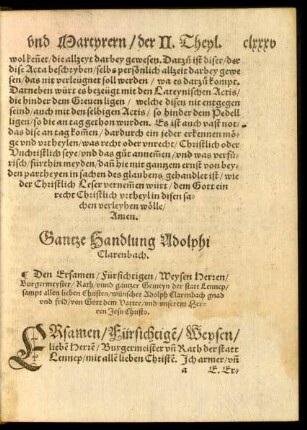 vnd Martyrern / der II. Theyl. clxxxv
wol keñet / die allzeyt darbey gewesen. Darzů ist diser / der
dise Acta beschryben / selbs persönlich allzeit darbey gewe
sen / das nit verleugnet soll werden / wa es darzů kompt.
Darneben würt es bezeügt mit den Lateynischen Actis /
die hinder dem Greuen ligen / welche disen nit entgegen
seind / auch mit den selbigen Actis / so hinder dem Pedell
ligen / so die an tag gethon wurden. Es ist auch vast not /
das dise an tag kom̃en / dardurch ein jeder erkennen mö
ge vnd vrtheylen / was recht oder vnrecht / Christlich oder
Vnchristlich seye / vnd das gůt annem̃en / vnd was verfů
risch / fürthin meyden / dañ hie mit gantzem ernst von bey
den partheyen in sachen des glaubens gehandlet ist / wie
der Christlich Leser vernem̃en würt / dem Gott ein
recht Christlich vrtheyl in disen sa
chen verleyhen wölle /
Amen.
Gantze Handlung Adolphi
Clarenbach.
¶ Den Ersamen / Fürsichtigen / Weysen Herren /
Burgermeyster / Rath / vnnd gantzer Gemeyn der statt Lennep /
sampt allen lieben Christen / wünschet Adolph Clarenbach gnad
vnd frid / von Gott dem Vatter / vnd vnserem Her
ren Jesu Christo.
ERsamen / Fürsichtigẽ / Weysen /
liebẽ Herrẽ / Burgermeister vñ Rath der statt
Lennep / mit allẽ lieben Christẽ. Ich armer / vñ
a E. Er⸗